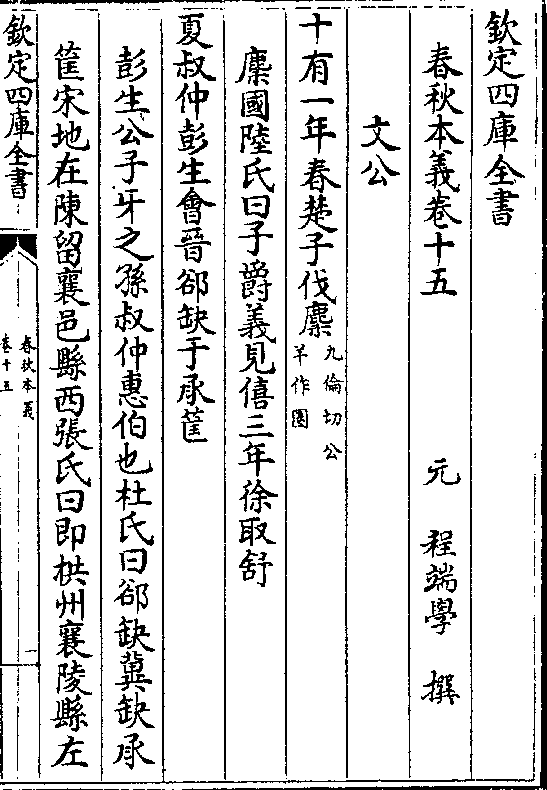 欽定四庫全書
春秋本義卷十五
元 程端學 撰
文公
十有一年春楚子伐麇九倫切公羊作圈
麇國陸氏曰子爵義見僖三年徐取舒
夏叔仲彭生會晉郤缺于承筐
彭生公子牙之孫叔仲惠伯也杜氏曰郤缺冀缺承
筐宋地在陳留襄邑縣西張氏曰即拱州襄陵縣左
欽定四庫全書
春秋本義
卷十五
一